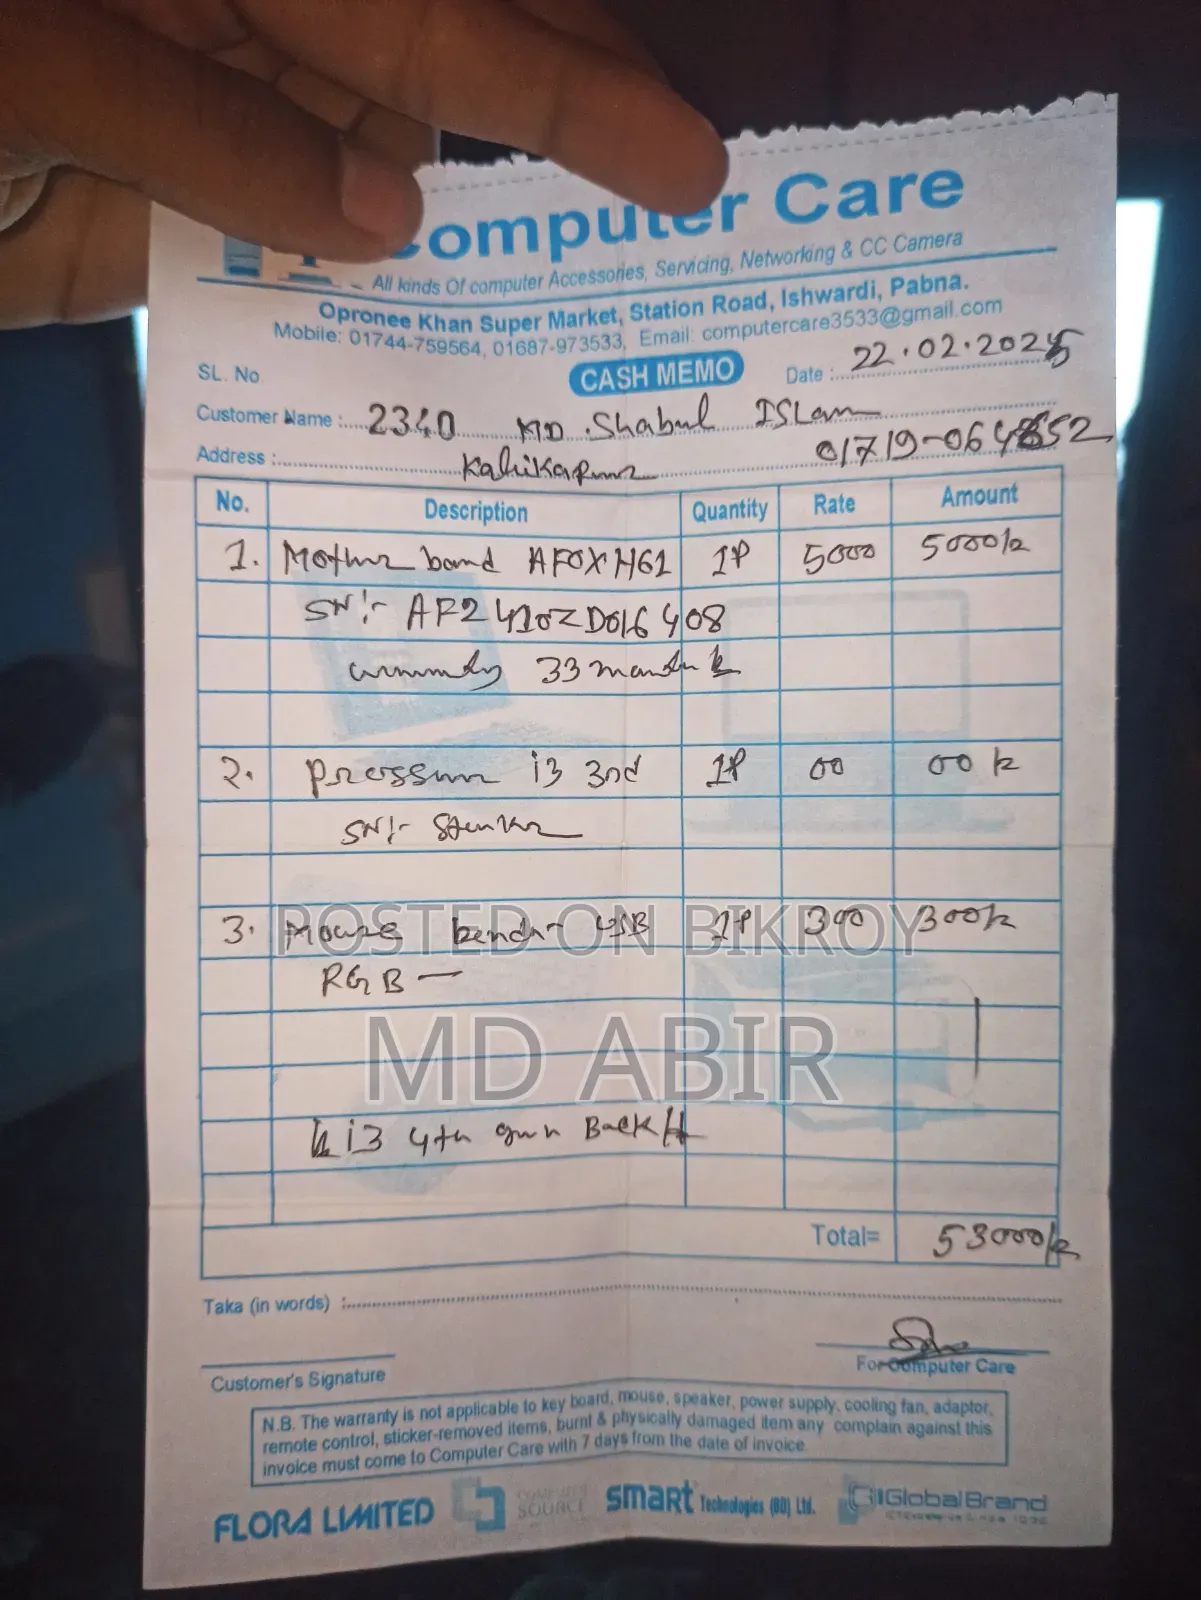 Computer Care
All kinds Of computer Accessories, Servicing, Networking & CC Camera
Opronee Khan Super Market, Station Road, Ishwardi, Pabna.
Mobile: 01744-759564, 01687-973533, Email: computercare3533@gmail.com
SL. No. CASH MEMO Date : 22.02.2025
Customer Name : 2340 MD. Shabul ISLam
Address : 01719-06
No. Description Quantity Rate Amount
1. Mother board AFOX H61 1P 5000 5000/-
SN:- AF2410ZD016408
33 month
2. Processor i3 3rd 1P 00 00/-
SN:- Sticker
3. Mouse USB 1P 300 300/-
RGB —
POSTED ON BIKROY
MD ABIR
i3 4th gen Back
Total= 53000/-
Taka (in words) :
For Computer Care
Customer's Signature
N.B. The warranty is not applicable to key board, mouse, speaker, power supply, cooling fan, adaptor,
remote control, sticker-removed items, burnt & physically damaged item any complain against this
invoice must come to Computer Care with 7 days from the date of invoice.
FLORA LIMITED COMPUTER SOURCE smart Technologies (BD) Ltd. Global Brand